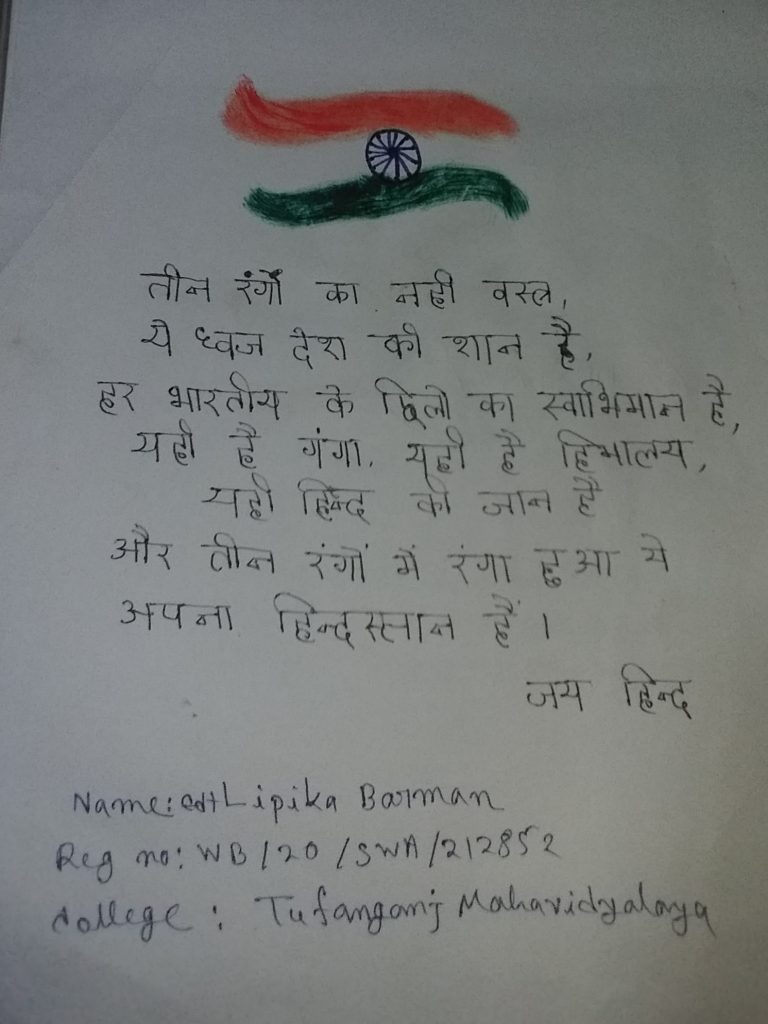 तीन रंगों का नही वस्त्र,
ये ध्वज देश की शान है,
हर भारतीय के दिलो का स्वाभिमान है,
यही है गंगा, यही है हिमालय,
यही हिन्द की जान है
और तीन रंगों में रंगा हुआ ये
अपना हिन्दस्तान हैं।
जय हिन्द
Name: cdt Lipika Barman
Reg no: WB/20/SWA/212852
College: Tufanganj Mahavidyalaya